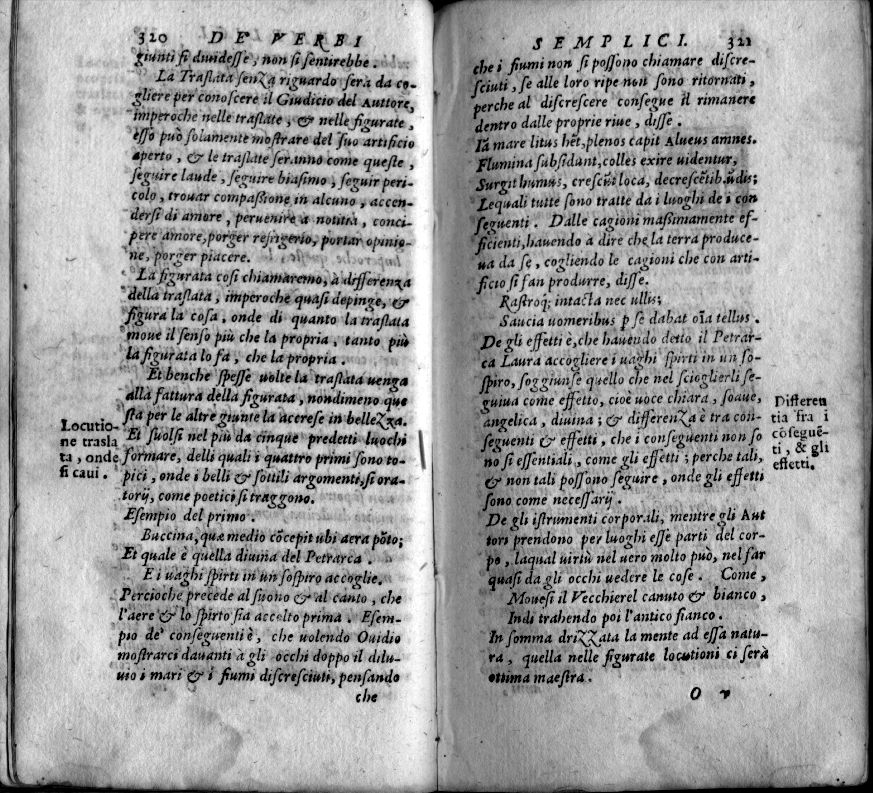 320 DE' VERBI
giunti si diuidesse, non si sentirebbe.
La Traslata senza riguardo serà da co-
gliere per conoscere il Giudicio del Auttore,
imperoche nelle traslate, & nelle figurate,
esso può solamente mostrare del suo artificio
aperto, & le traslate seranno come queste,
seguire laude, seguire biasimo, seguir peri-
colo, trouar compassione in alcuno, accen-
dersi di amore, peruenire a notitia, conci-
pere amore, porger refrigerio, portar opinio-
ne, porger piacere.
La figurata così chiamaremo, à differenza
della traslata, imperoche quasi depinge, &
figura la cosa, onde di quanto la traslata
moue il senso più che la propria, tanto più
la figurata lo fa, che la propria.
Et benche spesse uolte la traslata uenga
alla fattura della figurata, nondimeno que
sta per le altre giunte la accrese in bellezza.
Locutio-
ne trasla
ta, onde
si caui.
Et suolsi nel più da cinque predetti luochi
formare, delli quali i quattro primi sono to-
pici, onde i belli & sottili argomenti, si ora-
torij, come poetici si traggono.
Esempio del primo.
Buccina, quæ medio cōcepit ubi aera pōto;
Et quale è quella diuina del Petrarca.
E i uaghi spirti in un sospiro accoglie.
Percioche precede al suono & al canto, che
l'aere & lo spirto sia accolto prima. Esem-
pio de' conseguenti è, che uolendo Ouidio
mostrarci dauanti à gli occhi doppo il dilu-
uio i mari & i fiumi discresciuti, pensando
che
SEMPLICI. 321
che i fiumi non si possono chiamare discre-
sciuti, se alle loro ripe non sono ritornati,
perche al discrescere consegue il rimanere
dentro dalle proprie riue, disse.
Iā mare litus hēt, plenos capit Alueus amnes.
Flumina subsidunt, colles exire uidentur,
Surgit humus, crescūt loca, decrescētib. ūdis;
Lequali tutte sono tratte da i luoghi de i con
seguenti. Dalle cagioni maßimamente ef-
ficienti, hauendo a dire che la terra produce-
ua da se, cogliendo le cagioni che con arti-
ficio si fan produrre, disse.
Rastroq; intacta nec ullis;
Saucia uomeribus p se dabat oīa tellus.
De gli effetti è, che hauendo detto il Petrar-
ca Laura accogliere i uaghi spirti in un so-
spiro, soggiunse quello che nel scioglierli se-
guiua come effetto, cioè uoce chiara, soaue,
angelica, diuina; & differenza è tra con-
seguenti & effetti, che i conseguenti non so
no sì essentiali, come gli effetti; perche tali,
& non tali possono seguire, onde gli effetti
sono come necessarij.
Differen
tia fra i
cōseguē-
ti, & gli
effetti.
De gli istrumenti corporali, mentre gli Aut
tori prendono per luoghi esse parti del cor-
po, laqual uirtù nel uero molto può, nel far
quasi da gli occhi uedere le cose. Come,
Mouesi il Vecchierel canuto & bianco,
Indi trahendo poi l'antico fianco.
In somma drizzata la mente ad essa natu-
ra, quella nelle figurate locutioni ci serà
ottima maestra.
O v